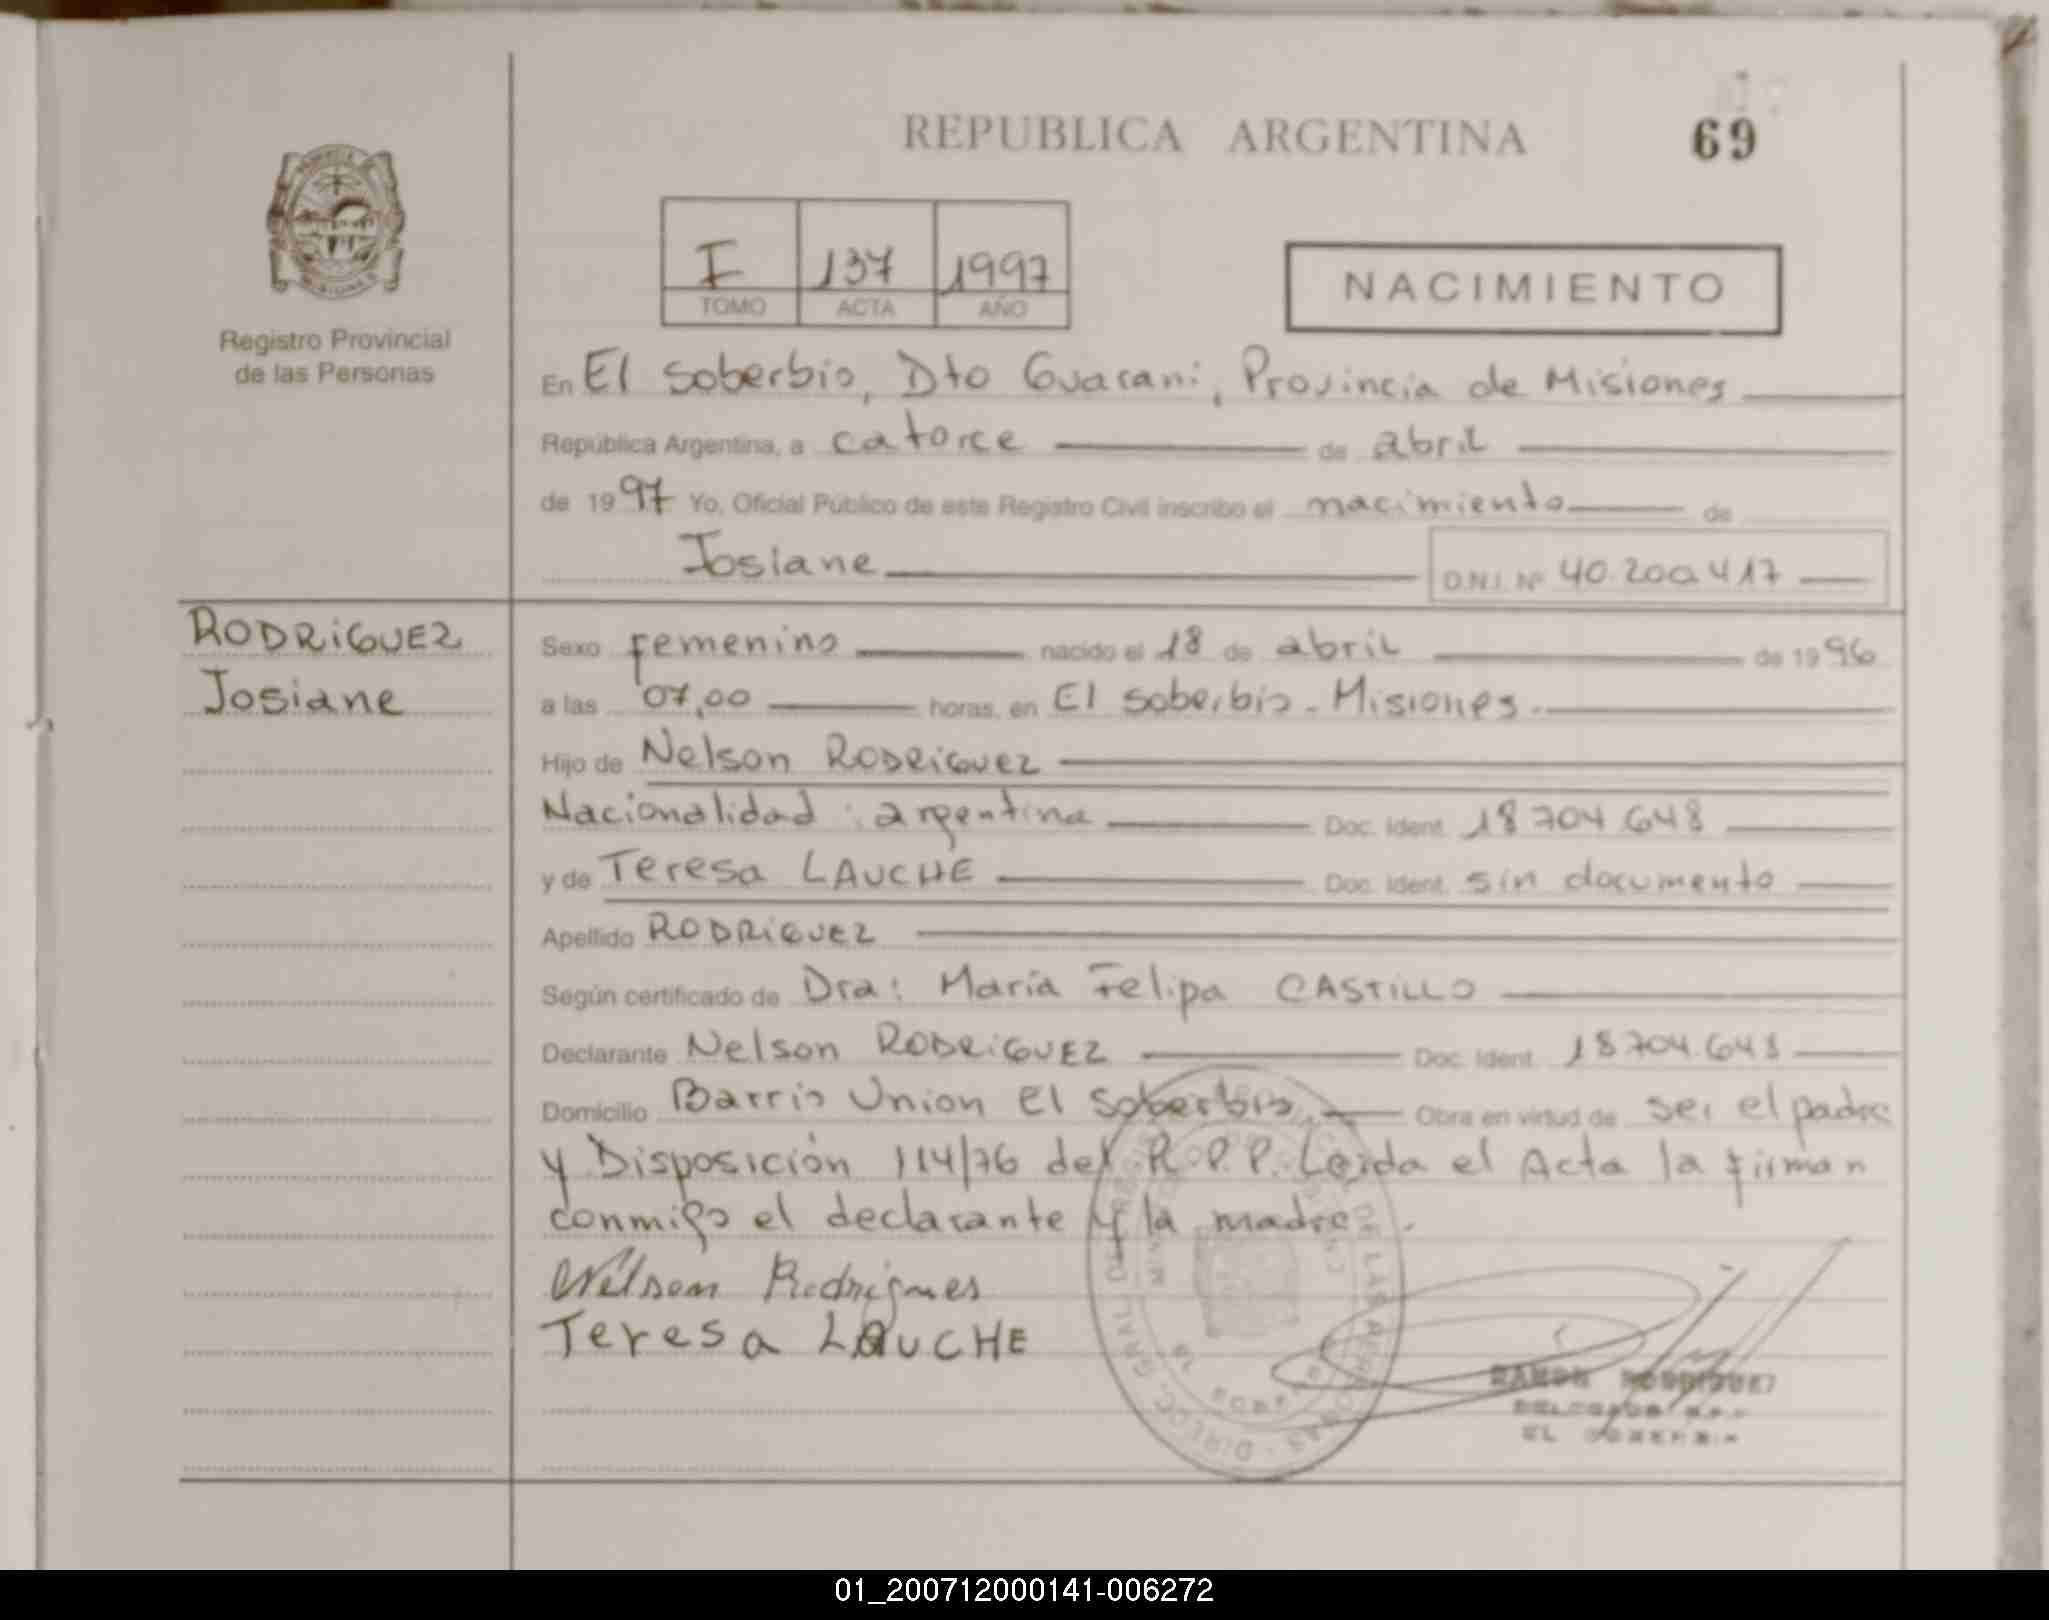 REPUBLICA ARGENTINA
69
I 137 1997
TOMO ACTA AÑO
NACIMIENTO
MISIONES
Registro Provincial
de las Personas
En El soberbio, Dto Guarani, Provincia de Misiones
República Argentina, a catorce de abril
de 1997 Yo, Oficial Público de este Registro Civil inscribo el nacimiento de
Josiane D.N.I. Nº 40.200.417
RODRiGUEZ
Josiane
Sexo femenino nacido el 18 de abril de 1996
a las 07,00 horas, en El soberbio - Misiones.
Hijo de Nelson RODRiGUEZ
Nacionalidad: argentina Doc. Ident. 18704.648
y de Teresa LAUCHE Doc. Ident. sin documento
Apellido RODRiGUEZ
Según certificado de Dra: María Felipa CASTILLO
Declarante Nelson RODRiGUEZ Doc. Ident. 18704.648
Domicilio Barrio Union El soberbio, Obra en virtud de ser el padre
y Disposición 114/76 del R.P.P. Leida el Acta la firman
conmigo el declarante y la madre.
Nelson Rodrigues
Teresa LAUCHE
RAMON RODRIGUEZ
EL SOBERBIO
01_200712000141-006272